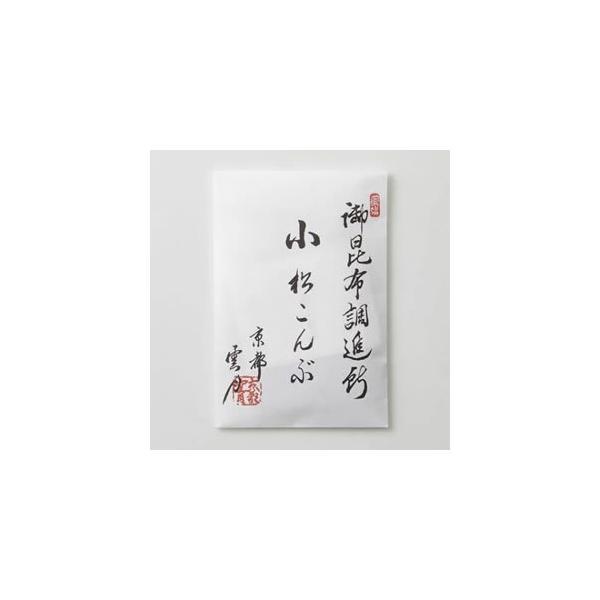 御昆布調進所
小松こんぶ
京都
雲月